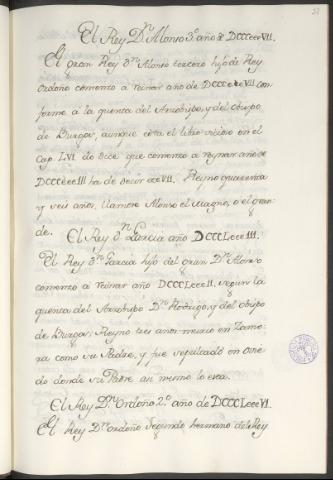 El Rey Dn. Alonso 3º año de DCCCeeeVII.
El gran Rey Dn. Alonso tercero hijo de Rey
Ordoño comenzo a reinar año de DCCCeeeVII con
forme á la quenta del Arzobispo, y del obispo
de Burgos, aunque esta el libro vicioso en el
cap. LVI. do dice que comenzo a reynar año de
DCCCeeeIII ha de decir eeeVII. Reyno quarenta
y seis años. llamose Alonso el Magno, o el gran
de.
El Rey Dn. Garcia año DCCCLeeeIII.
El Rey Dn. Garcia hijo del Gran Dn. Alonso
comenzo a reinar año DCCCLeeeII, segun la
quenta del Arzobispo Dn. Rodrigo, y del obispo
de Burgos. Reyno tres años murio en Zamo
ra como su Padre, y fue sepultado en Ovie
do donde su Padre asi mismo lo esta.
El Rey Dn. Ordoño 2º. año de DCCCLeeeVI.
El Rey Dn. Ordoño segundo hermano del Rey